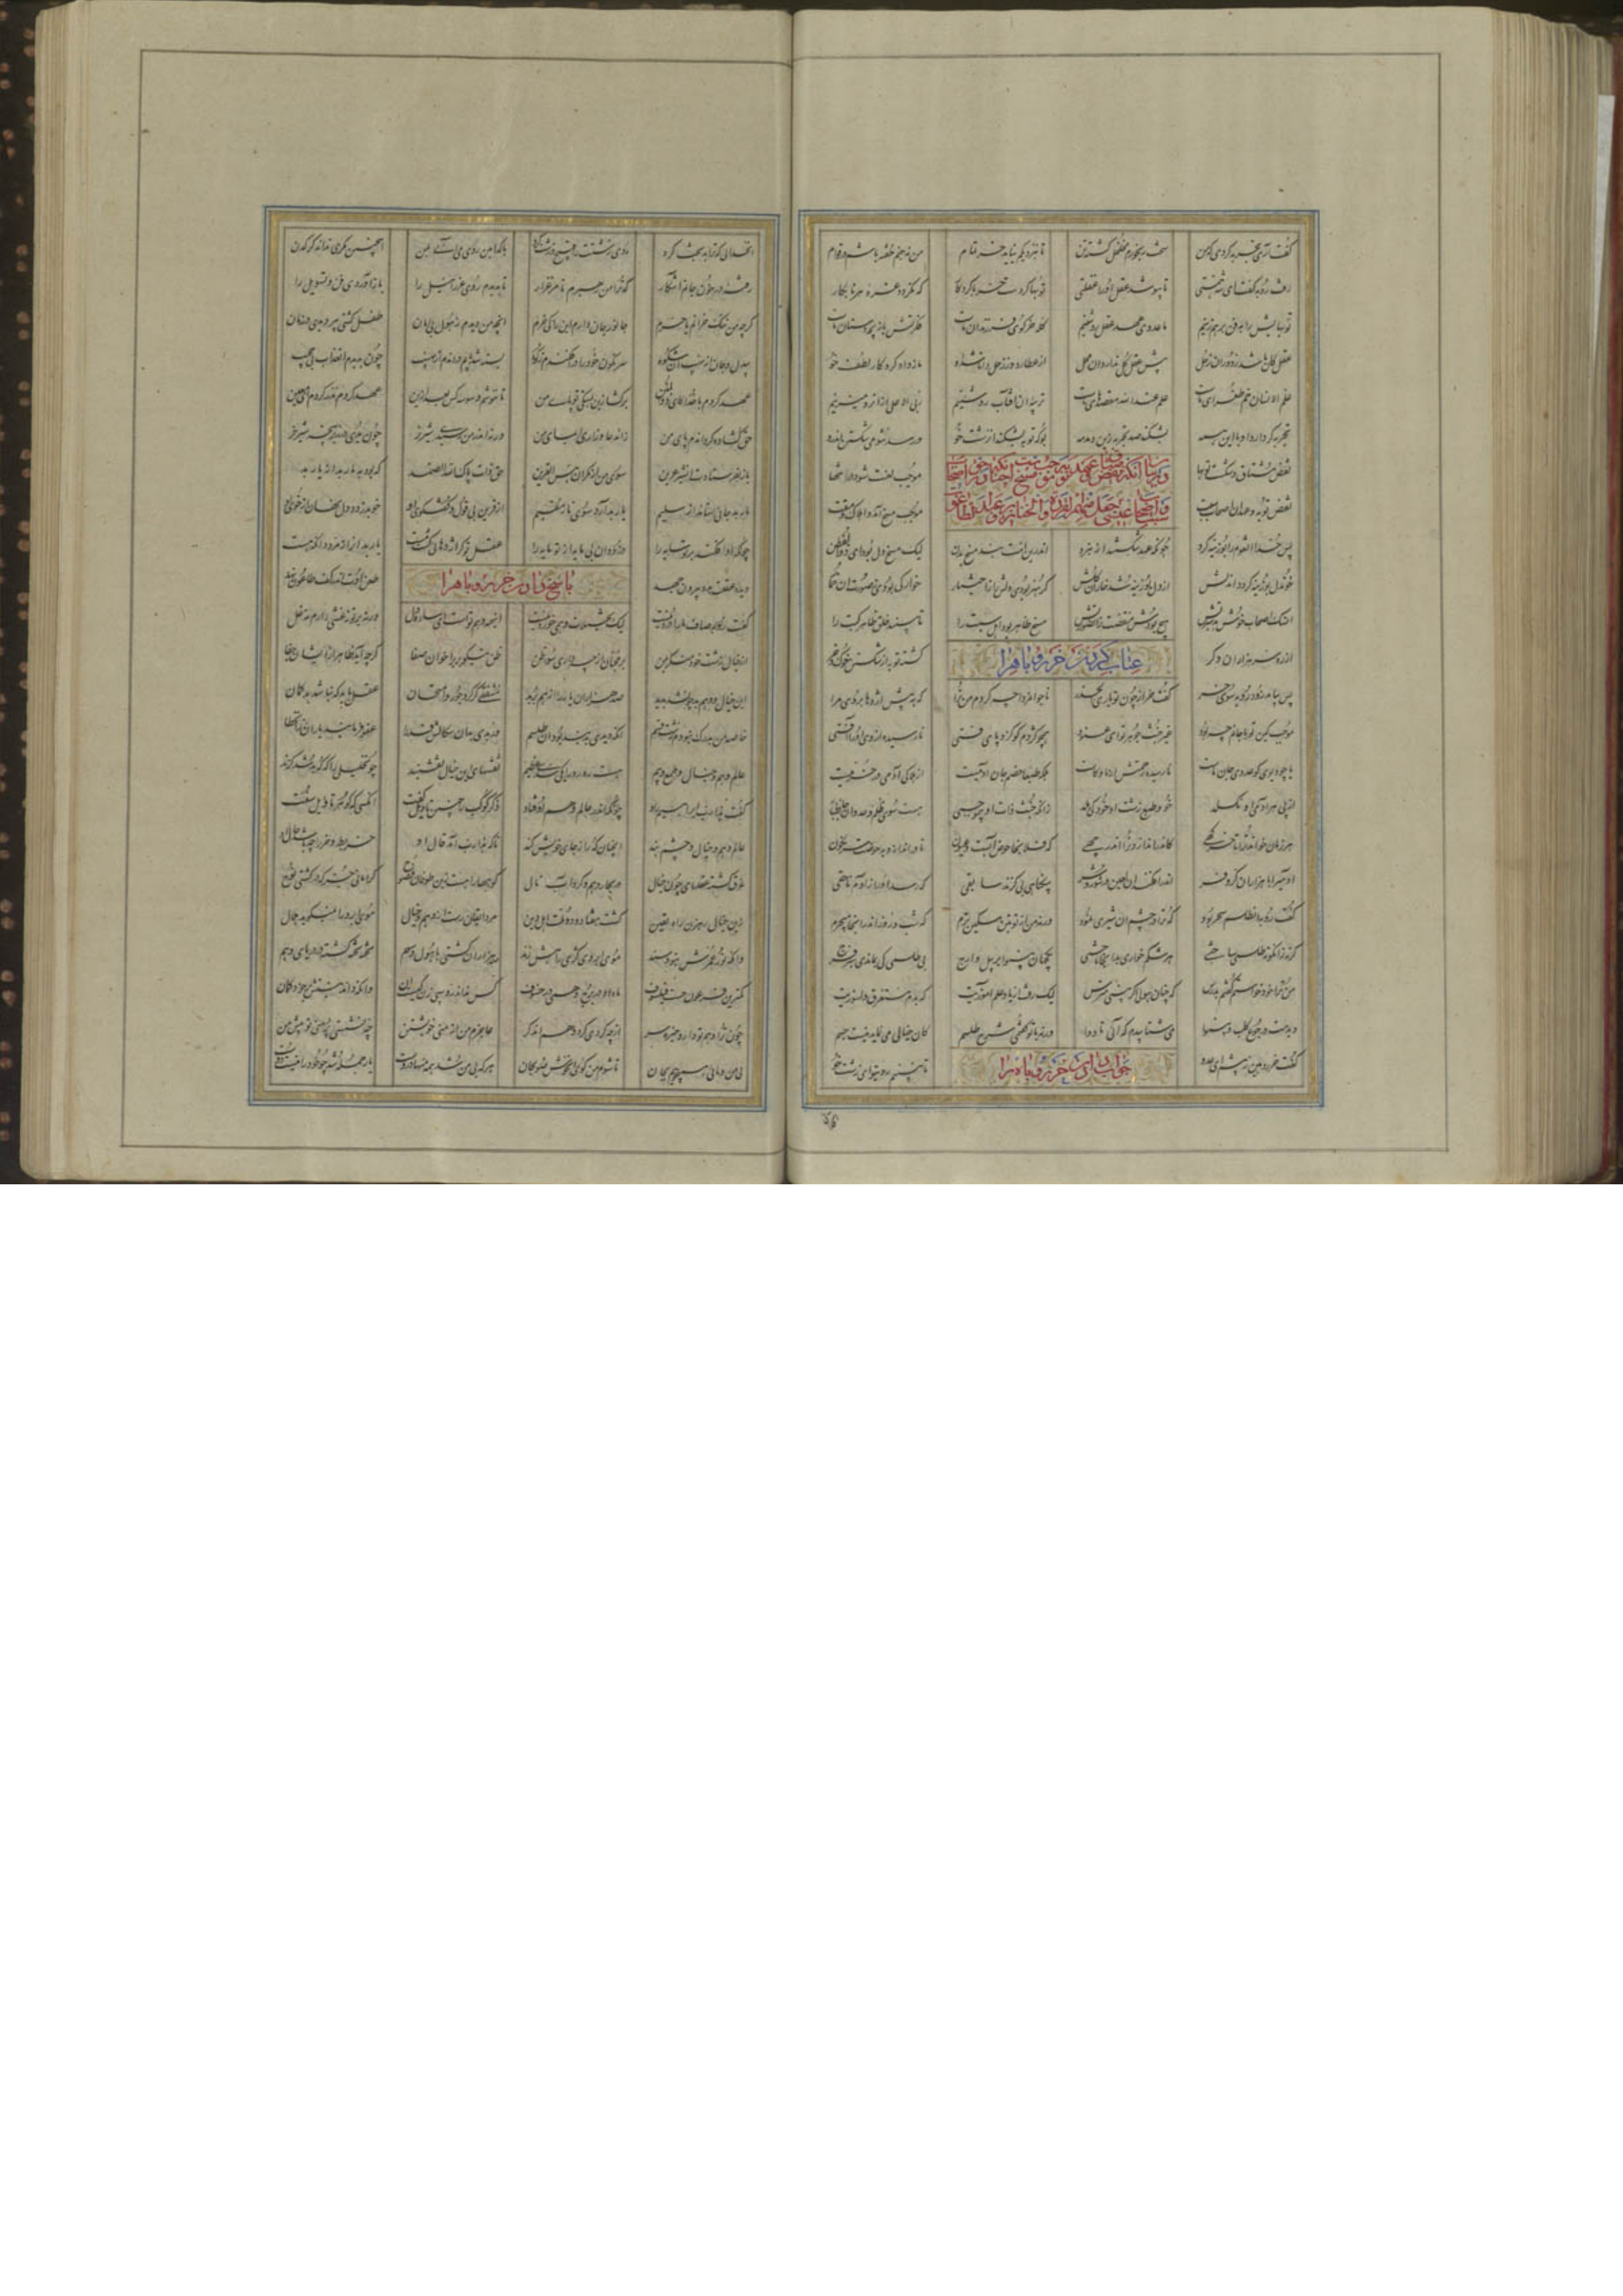 گفت آری تجربه کردی که من سخت رنجورم مخلخل گشته تن تا بنزدیکم نیاید خر تمام من نجنبم خفته باشم در قوام
رفت روبه گفت ای شه همتی تا بپوشد عقل او را غفلتی توبها کردست خر با کردکار که نکردد غره هر نابکار
توبهایش را بفن بر هم زنیم ما عدوی عهد و عقل روشنیم کله خر کوی فرزندان ماست فکرتش بازیچه دستان ماست
عقل کان باشد ز دوران زحل پیش عقل کل ندارد آن محل از عطارد وز زحل دانا شد او ما ز داد کردکار لطف خو
علم الانسان خم طغرای ماست علم عند الله مقصدهای ماست تربیه آن آفتاب روشنیم ربی الاعلی از آن رو میزنیم
تجربه کر دارد او با این همه بشکند صد تجربه زین دمدمه بوکه توبه بشکند آن سست خو در رسد شومی بشکستن درو
در بیان آنکه نقض عهد و توبه موجب
نقض میثاق و شکست توبها موجب لعنت شود در انتها
نقض توبه و عهد آن اصحاب سبت موجب مسخ آمد و اهلاک و مقت
پس خدا آن قوم را بوزینه کرد چونکه عهد شکستند از نبرد اندرین امت نبد مسخ بدن لیک مسخ دل بود ای ذوالفطن
چون دل بوزینه کردد آن دلش از دل بوزینه شد خوار آن کلش کر هنر بودی دلش را ز اختیار خوار کی بودی ز صورت آن حمار
آن سک اصحاب خوش بد سیرتش هیچ بودش منقصت زان صورتش مسخ ظاهر بود اهل سبت را تا ببیند خلق ظاهر کبت را
از ره سر هزاران دکر کشته توبه از شکستن خوک و خر
عتاب کردن خر روباه را
پس بیامد زود روبه سوی خر کفت خر از چون تو یاری الحذر ناجوامردا چه کردم من ترا که به پیش اژدها بردی مرا
موجب کین تو با جانم چه بود غیر خبث جوهر تو ای عنود همچو کژدم کو کزد پای فتی نارسیده از وی او را آفتی
یا چو دیوی کو عدوی جان ماست نارسیده زحمتش از ما و کاست بلکه طبعا خصم جان آدمیست از هلاک آدمی در خرمیست
از پی هر آدمی او نکسلد خو و طبع زشت او خود کی هلد زانکه خبث ذات او بی موجبی هست سوی ظلم و عدوان جاذبی
هر زمان خواند ترا تا خرکهی کاندر اندازد ترا اندر چهی که فلانجا حوض آبست و عیون تا در اندازد به حوضت سرنکون
آدمی را با هزاران کر و فر اندر افکند آن لعین در شور و شر بیکناهی بی کزند سابقی که رسد او را ز آدم ناحقی
کفت روبه آن طلسم سحر بود که ترا در چشم آن شیری نمود ورنه من از تو بتن مسکین ترم که شب و روز اندر آنجا میچرم
کرنه زانکونه طلسمی ساختی هر شکم خواری بدانجا تاختی یکجهان بینوا پر پیل و ارج بی طلسمی کی بماندی سبز مرج
من ترا خود خواستم کفتن بدرس که چنان هولی اکر بینی مترس لیک رفت از یاد علم آموزیت که بدم مستغرق دلسوزیت
دیدمت در جوع کلب و بینوا می شتابیدم که آئی تا دوا ورنه با تو کفتمی شرح طلسم کان خیالی می نماید نیست جسم
جواب دادن خر روباه را
کفت رو رو هین ز پیشم ای عدو تا نبینم روی تو ای زشت رو
آن خدائی که ترا بدبخت کرد روی زشتت را کرد با کدامین روی می آئی بمن اینچنین ندارد کرکدن
رفته در خون جانم آشکار که ترا من رهبرم تا مرغزار تا بدیدم روی عزرائیل را باز آوردی فن و تسویل را
کرچه من ننک خرانم یا خرم جانورم جان دارم این را کی خرم آنچه من دیدم ز هول بی امان طفل کشتی پیر دیدی در زمان
بیدل و جان از نهیب آن شکوه سرنکون خود را در افکندم ز کوه بسته شد پایم در آن دم از نهیب چون بدیدم آن عذاب بی حجیب
عهد کردم با خدا کای ذوالمنن برکشا زین بستکی تو پای من تا ننوشم وسوسه کس بعد ازین عهد کردم نذر کردم ای معین
حق کشاده کرد آن دم پای من زان دعا و زاری و ایمای من ورنه اندر من رسیدی شیر نر چون بدی در زیر پنجه شیر خر
باز بفرستادت آن شیر عرین سوی من از مکر ای بئس القرین حق ذات پاک الله الصمد که بود به مار بد از یار بد
مار بد جانی ستاند از سلیم یار بد آرد سوی نار مقیم از قرین بی قول و کفت و کوی او خو بدزدد دل نهان از خوی او
چونکه او افکند بر تو سایه را دزدد آن بی مایه از تو مایه را عقل تو کر اژدهائی کشت مست یار بد او را زمرد دان که هست
دیده عقلت بدو بیرون جهد طعن اوت اندر کف طاعون نهد
پاسخ دادن خر روباه را
کفت روبه صاف ما را درد نیست لیک تخییلات وهمی خورد نیست این همه وهم توست ای ساده دل ورنه بر تو نه غشی دارم نه غل
از خیال زشت خود منکر بمن بر محبان از چه داری سوء ظن ظن نیکو بر بر اخوان صفا کرچه آید ظاهر از ایشان جفا
این خیال و وهم بد چون شد پدید صد هزاران یار را از هم برید مشفقی کر کرد جور و امتحان عقل باید که نباشد بدکمان
خاصه من بدرک نبودم زشت اسم آنکه دیدی بد نبد بود آن طلسم ور بدی بد آن سکالش قدرا عفو فرمایند یاران زان خطا
عالم وهم و خیال و طمع و بیم هست رهرو را یکی سدی عظیم نقشهای این خیال نقشبند چون خلیلی را که که بد شد کزند
کفت هذا رب ابراهیم راد چونکه اندر عالم وهم اوفتاد ذکر کوکب را چنین تاویل کفت آنکسی که کوهر تاویل سفت
عالم وهم و خیال و چشم بند آنچنان که را ز جای خویش کند تا که هذا رب آمد قال او خربط و خر را چه باشد حال او
غرق کشته عقلهای چون جبال در بحار وهم و کرداب خیال کوهها را هست زین طوفان فضوح کو امانی جز که در کشتی نوح
زین خیال رهزن راه یقین کشت هفتاد و دو ملت اهل دین مرد ایقان رست از وهم و خیال موی ابرو را نمیکوید هلال
وانکه نور عمرش نبود سند موی ابروی کژی راهش زند صد هزاران کشتی با هول و سهم تخته تخته کشته در دریای وهم
کمترین فرعون چست فیلسوف ماه او در برج وهمی در خسوف کس نداند روسپی زن کیست آن وانکه داند نیستش بر خود کمان
چون ترا وهم تو دارد خیره سر از چه کردی کرد وهم آن دکر عاجزم من از منی خویشتن چه نشستی پر منی تو پیش من
بی من و مائی همی جویم بجان تا شوم من کوی آن خوش صولجان هر که بی من شد همه منها دروست یار جمله شد چو خود را نیست دوست